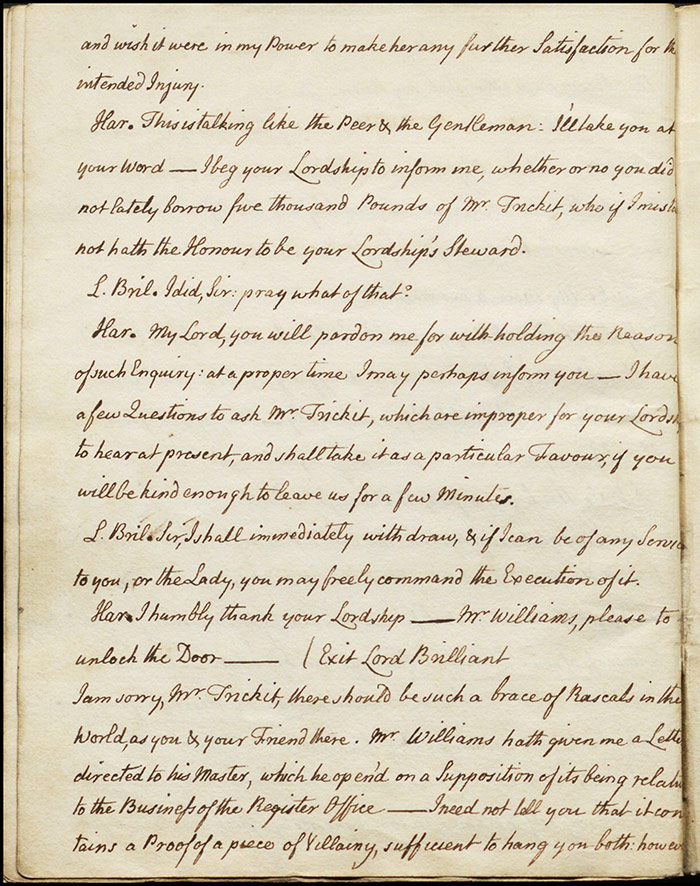 and wish it were in my Power to make her any further Satisfaction for the
intended Injury.
Har. This is talking like the Peer & the Gentleman: I'll take you at
your Word — I beg your Lordship to inform me, whether or no you did
not lately borrow five thousand Pounds of Mr. Trickit, who if I mista
not hath the Honour to be your Lordship's Steward.
L. Bril. I did, Sir: pray what of that?
Har. My Lord, you will pardon me for with-holding the Reason
of such Enquiry: at a proper time I may perhaps inform you — I have
a few Questions to ask Mr. Trickit, which are improper for your Lordsh
to hear at present, and shall take it as a particular Favour, if you
will be kind enough to leave us for a few Minutes.
L. Bril. Sir, I shall immediately withdraw, & if I can be of any Servi
to you, or the Lady, you may freely command the Execution of it.
Har. I humbly thank your Lordship — Mr. Williams, please to
unlock the Door — ( Exit Lord Brilliant
I am sorry, Mr. Trickit, there should be such a brace of Rascals in the
World, as you & your Friend there. Mr. Williams hath given me a Lette
directed to his Master, which he open'd on a Supposition of its being relati
to the Business of the Register Office — I need not tell you that it con
tains a Proof of a piece of Villainy, sufficient to hang you both: howev